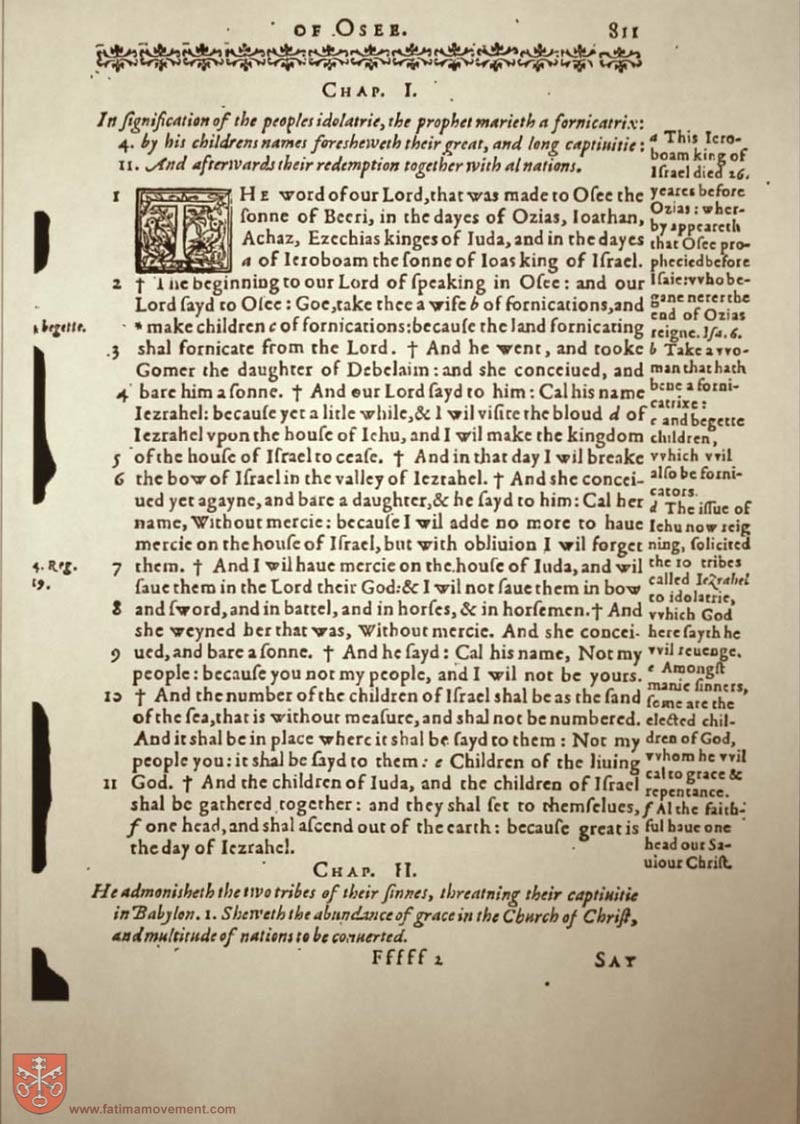 OF OSEE. 811
CHAP. I.
In ſignification of the peoples idolatrie, the prophet marieth a fornicatrix:
4. by his childrens names foresheweth their great, and long captiuitie:
11. And afterwards their redemption together with al nations.
1 THE word of our Lord, that was made to Oſee the
ſonne of Beeri, in the dayes of Ozias, Ioathan,
Achaz, Ezechias kinges of Iuda, and in the dayes
a of Ieroboam the ſonne of Ioas king of Iſrael.
2 † The beginning to our Lord of ſpeaking in Oſee: and our
Lord ſayd to Oſee: Goe, take thee a wife b of fornications, and
* make children c of fornications: becauſe the land fornicating
3 shal fornicate from the Lord. † And he went, and tooke
Gomer the daughter of Debelaim: and she conceiued, and
4 bare him a ſonne. † And our Lord ſayd to him: Cal his name
Iezrahel: becauſe yet a litle while, & I wil viſite the bloud d of
Iezrahel vpon the houſe of Iehu, and I wil make the kingdom
5 of the houſe of Iſrael to ceaſe. † And in that day I wil breake
6 the bow of Iſrael in the valley of Iezrahel. † And she concei-
ued yet agayne, and bare a daughter, & he ſayd to him: Cal her
name, Without mercie: becauſe I wil adde no more to haue
mercie on the houſe of Iſrael, but with obliuion I wil forget
7 them. † And I wil haue mercie on the houſe of Iuda, and wil
ſaue them in the Lord their God: & I wil not ſaue them in bow
8 and ſword, and in battel, and in horſes, & in horſemen. † And
she weyned her that was, Without mercie. And she concei-
9 ued, and bare a ſonne. † And he ſayd: Cal his name, Not my
people: becauſe you not my people, and I wil not be yours.
10 † And the number of the children of Iſrael shal be as the ſand
of the ſea, that is without meaſure, and shal not be numbered.
And it shal be in place where it shal be ſayd to them: Not my
people you: it shal be ſayd to them: e Children of the liuing
11 God. † And the children of Iuda, and the children of Iſrael
shal be gathered together: and they shal ſet to themſelues,
f one head, and shal aſcend out of the earth: becauſe great is
the day of Iezrahel.
begette.
4. Reg.
19.
a This Iero-
boam king of
Iſrael died 26.
yeares before
Ozias: wher-
by appeareth
that Oſee pro-
phecied before
Iſaie: vvho be-
gane nerer the
end of Ozias
reigne. Iſa. 6.
b Take a vvo-
man that hath
bene a forni-
catrixe:
c and begette
children,
vvhich vvil
alſo be forni-
cators.
d The iſſue of
Iehu now reig
ning, ſolicited
the 10 tribes
called Iezrahel
to idolatrie,
vvhich God
here ſayth he
vvil reuenge.
e Amongſt
manie ſinners,
ſome are the
elected chil-
dren of God,
vvhom he vvil
cal to grace &
repentance.
f Al the faith-
ful haue one
head our Sa-
uiour Chriſt.
CHAP. II.
He admonisheth the two tribes of their ſinnes, threatning their captiuitie
in Babylon. 1. Sheweth the abundance of grace in the Church of Chriſt,
and multitude of nations to be conuerted.
Fffff 2 SAY
www.fatimamovement.com